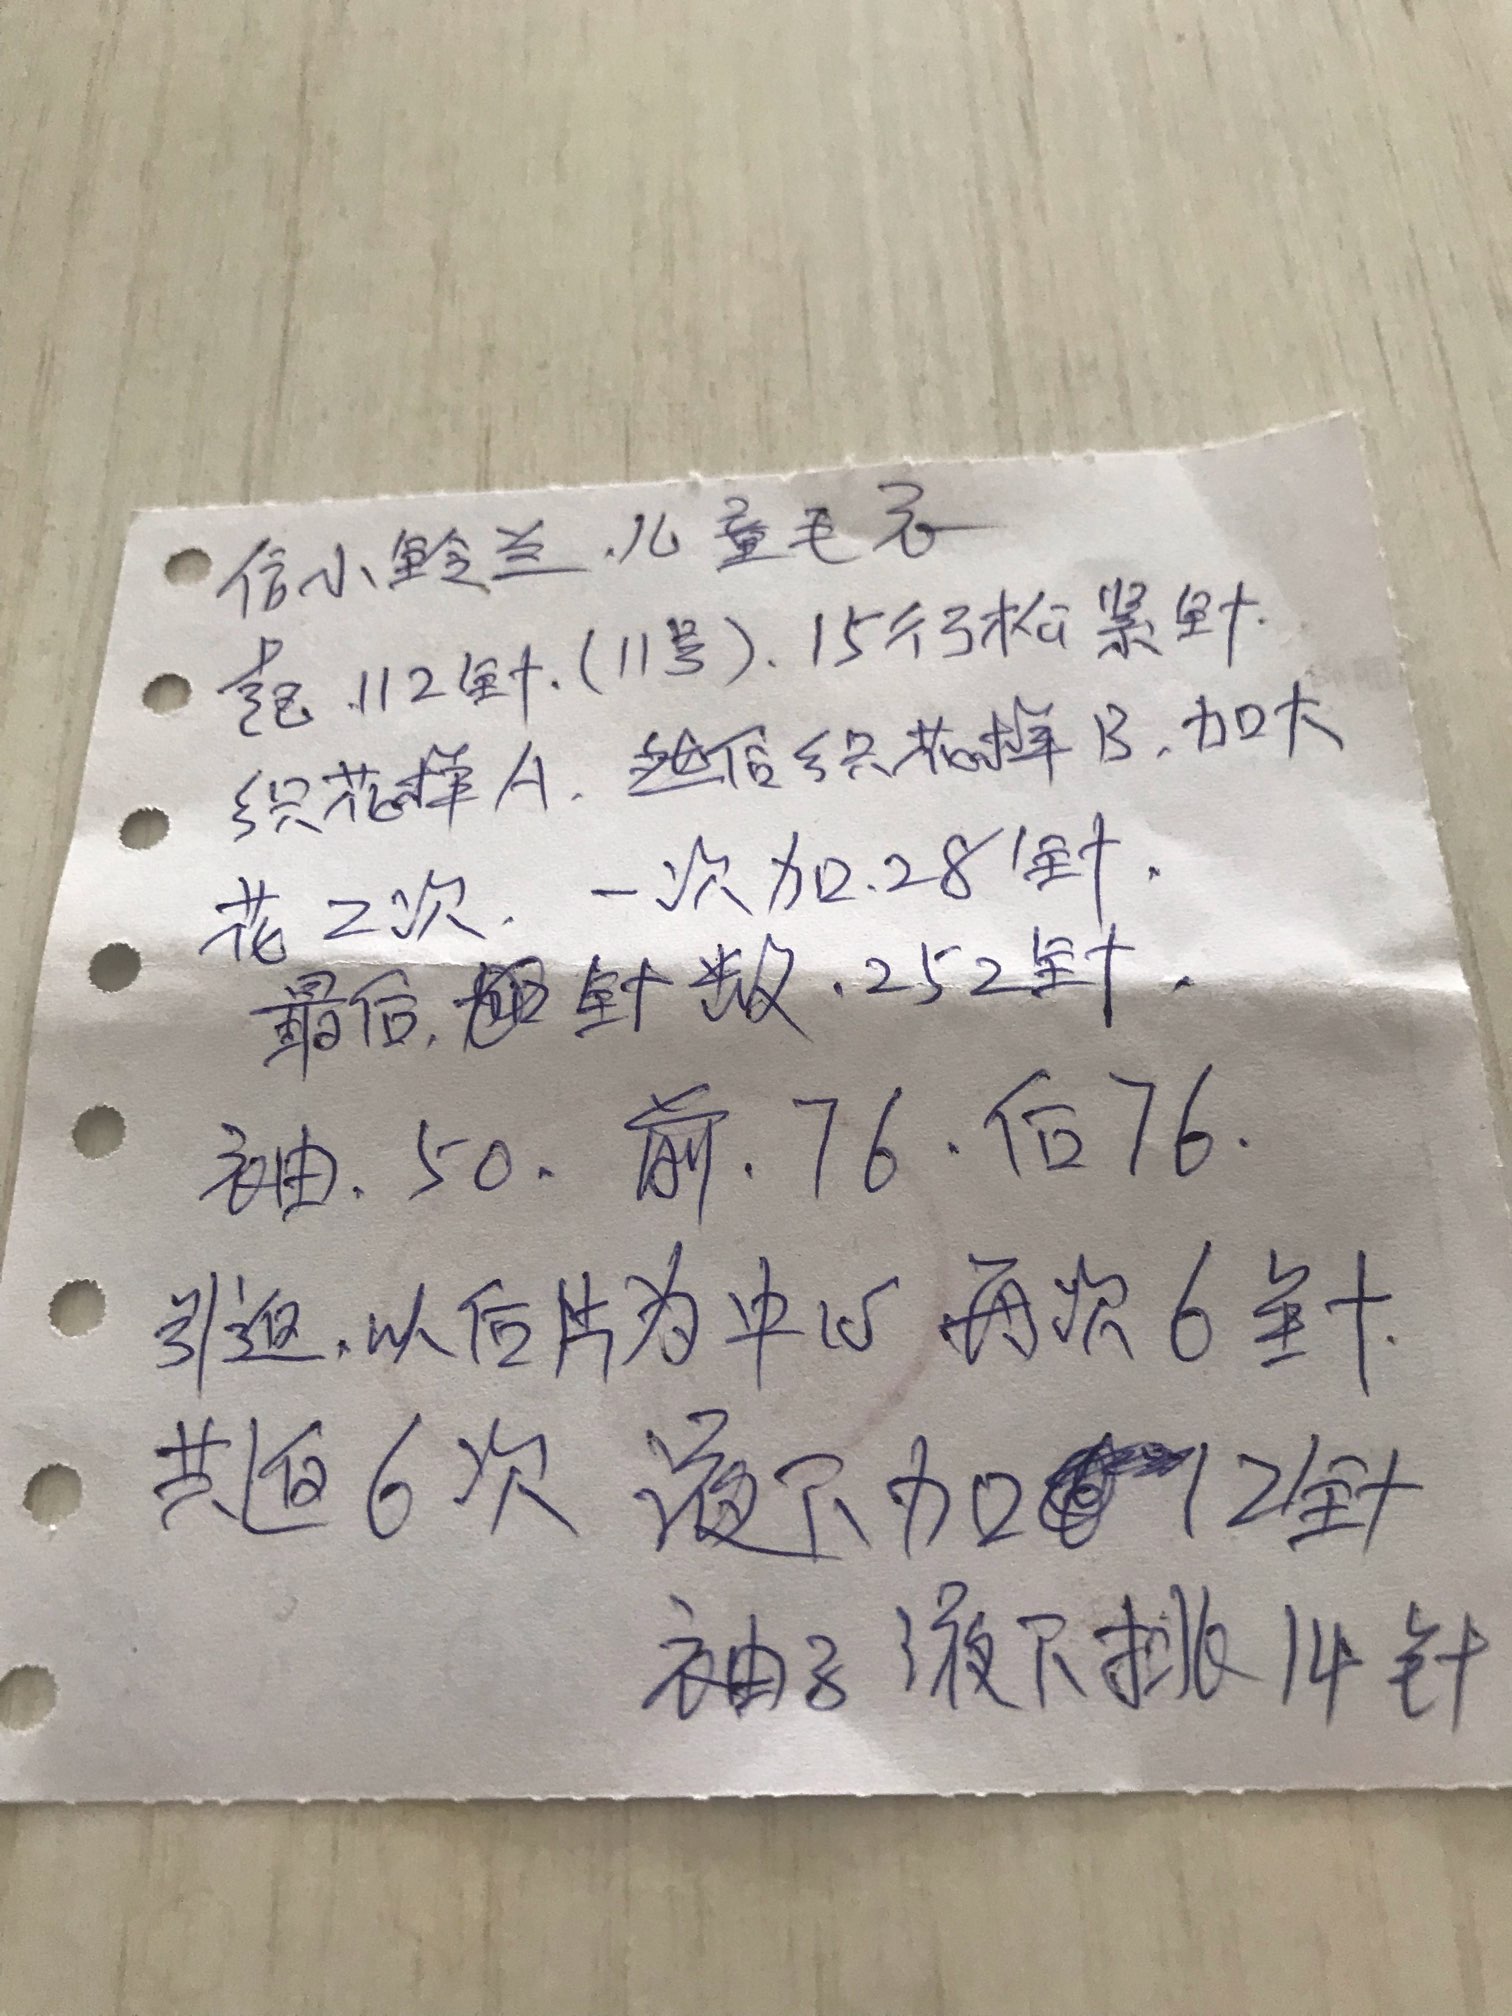 信小铃兰.儿童毛衣
起.112针.(11号).15行松紧针.
织花样A.然后织花样B.加大
花2次.一次加.28针.
最后.针数.252针.
袖.50.前.76.后76.
引返.以后片为中心 再次6针.
共返6次 液下加 12针
袖子液下挑14针